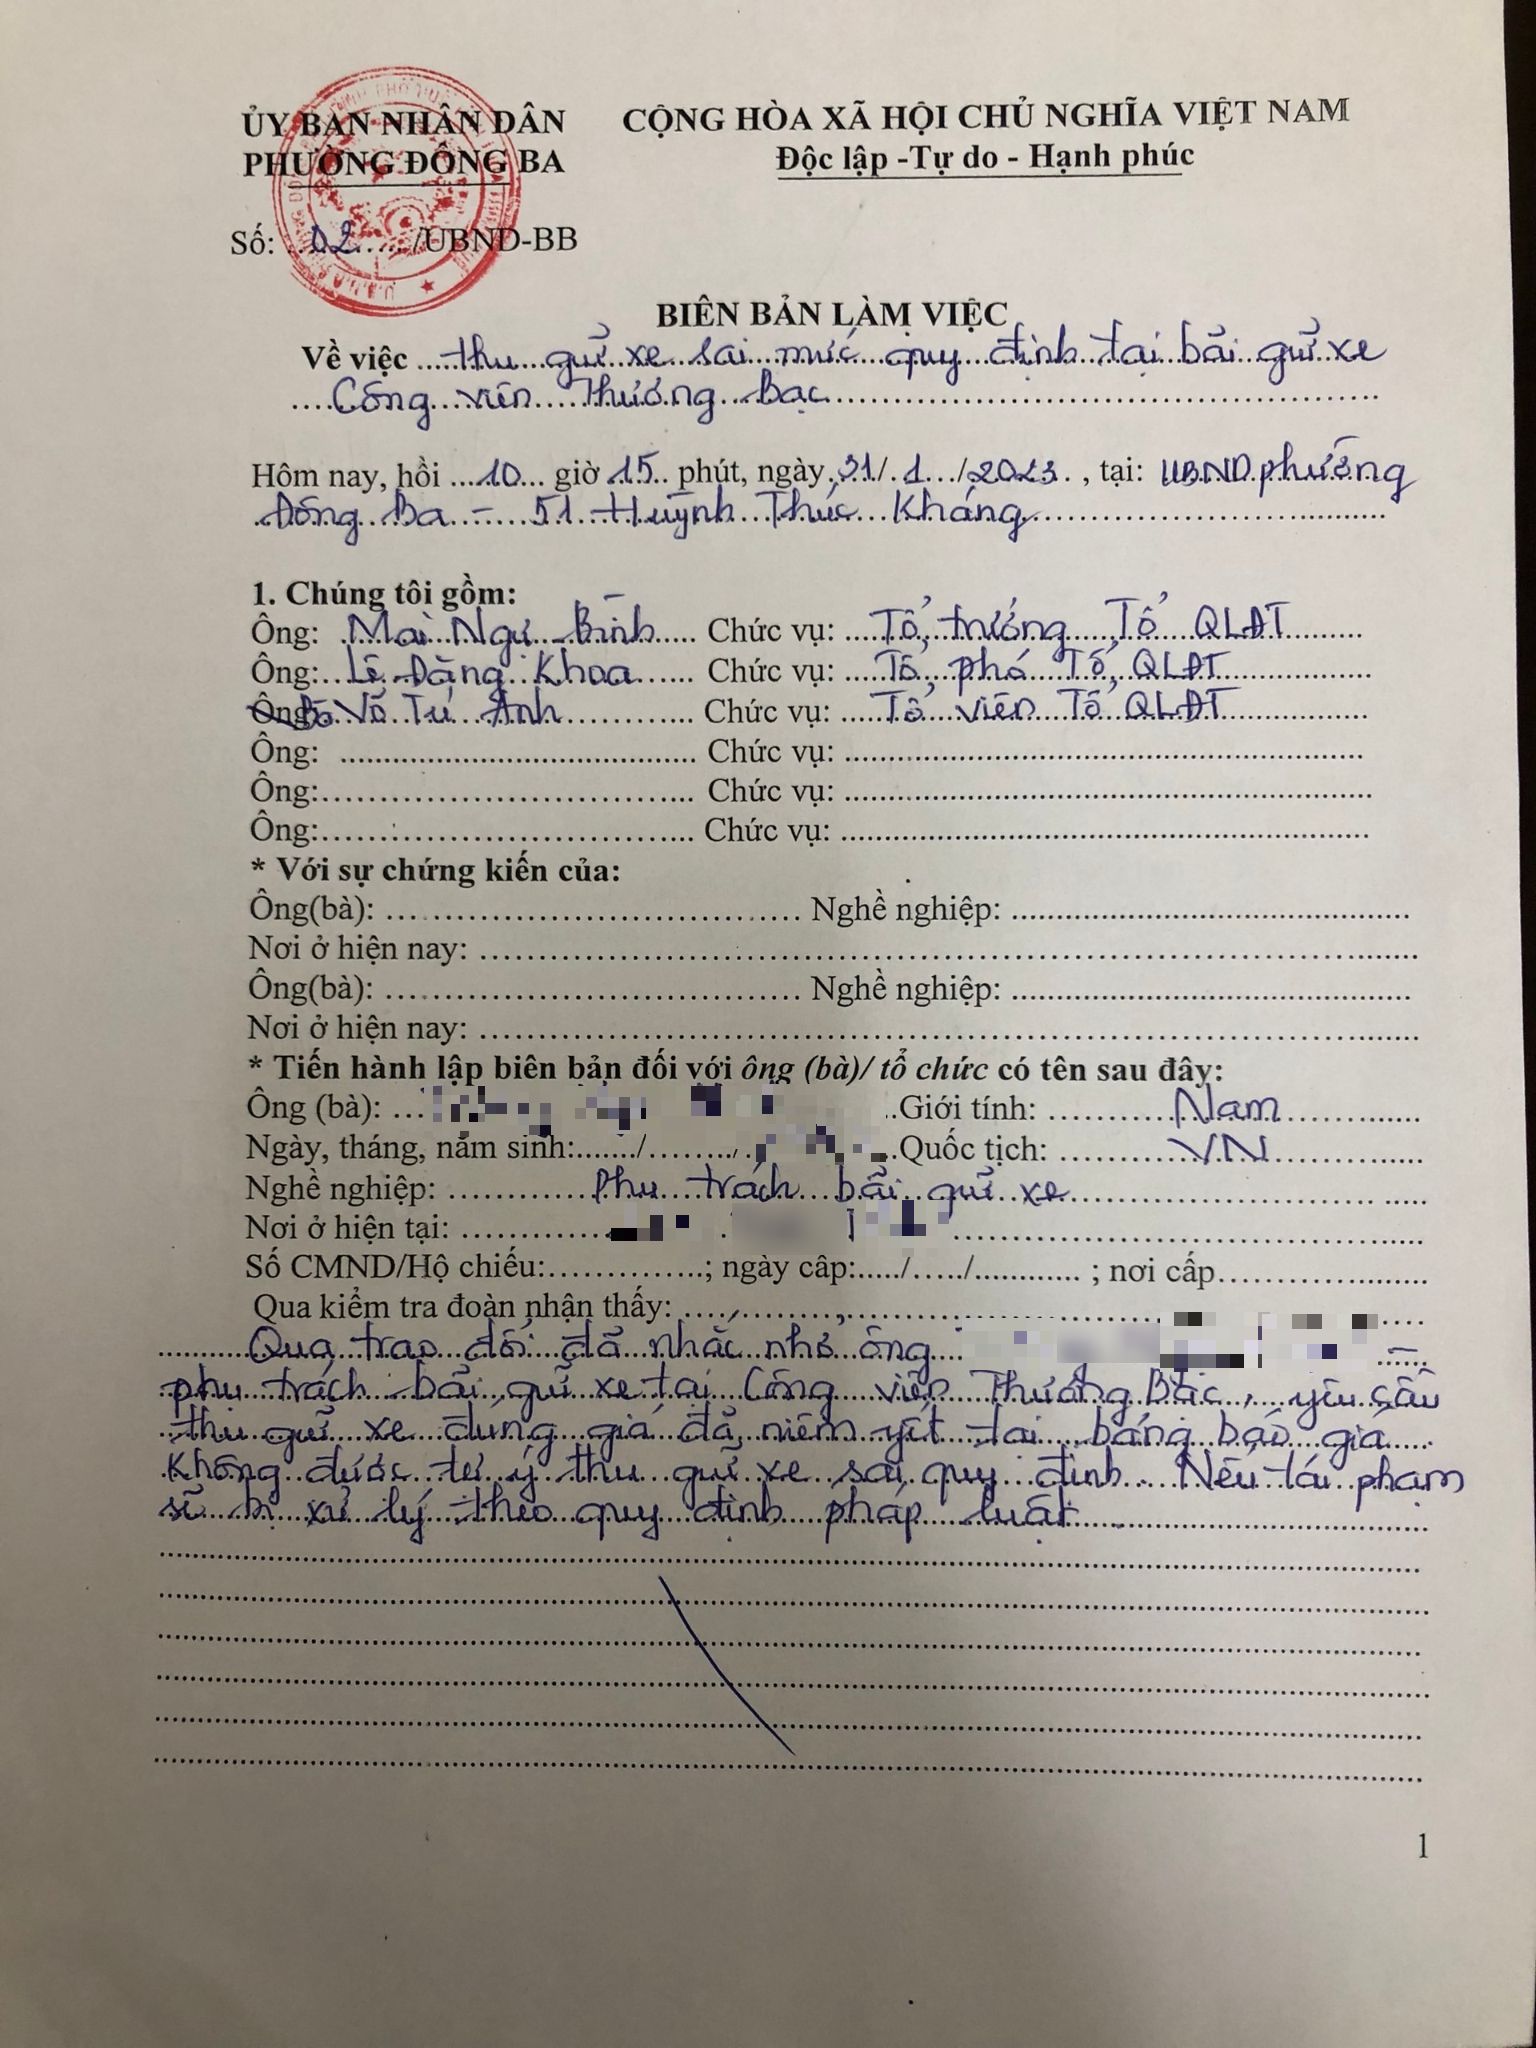 ỦY BAN NHÂN DÂN
PHƯỜNG ĐÔNG BA
CỘNG HÒA XÃ HỘI CHỦ NGHĨA VIỆT NAM
Độc lập -Tự do - Hạnh phúc
Số: ...02...... /UBND-BB
BIÊN BẢN LÀM VIỆC
Về việc ...thu gửi xe sai mức quy định tại bãi gửi xe
....Công viên Thương Bạc..............................
Hôm nay, hồi ...10... giờ 15.. phút, ngày 31/.1.../2023. , tại: UBND phường
Đông Ba - 51 Huỳnh Thúc Kháng..............................
1. Chúng tôi gồm:
Ông: Mai Ngự Bình..... Chức vụ: ....Tổ trưởng Tổ QLĐT
Ông: Lê Đăng Khoa...... Chức vụ: ....Tổ phó Tổ QLĐT
Ông: Bà Võ Tú Anh Chức vụ: ....Tổ viên Tổ QLĐT
Ông: .............................. Chức vụ: ..............................
Ông:.............................. Chức vụ: ..............................
Ông:.............................. Chức vụ: ..............................
* Với sự chứng kiến của:
Ông(bà): .............................. Nghề nghiệp: ..............................
Nơi ở hiện nay: ............................................................
Ông(bà): .............................. Nghề nghiệp: ..............................
Nơi ở hiện nay: ............................................................
* Tiến hành lập biên bản đối với ông (bà)/ tổ chức có tên sau đây:
Ông (bà): ... Giới tính: ..........Nam..........
Ngày, tháng, năm sinh:....../......../. Quốc tịch: ..........VN..........
Nghề nghiệp: ..........Phụ trách bãi gửi xe....................
Nơi ở hiện tại: .............. ..............................
Số CMND/Hộ chiếu:...............; ngày câp:...../...../............ ; nơi cấp....................
Qua kiểm tra đoàn nhận thấy: ..............................
..........Qua trao đổi đã nhắc nhở ông....
phụ trách bãi gửi xe tại Công viên Thương Bạc, yêu cầu
thu gửi xe đúng giá đã niêm yết tại bảng báo giá
Không được tự ý thu gửi xe sai quy định. Nếu tái phạm
sẽ bị xử lý theo quy định pháp luật..............................
1